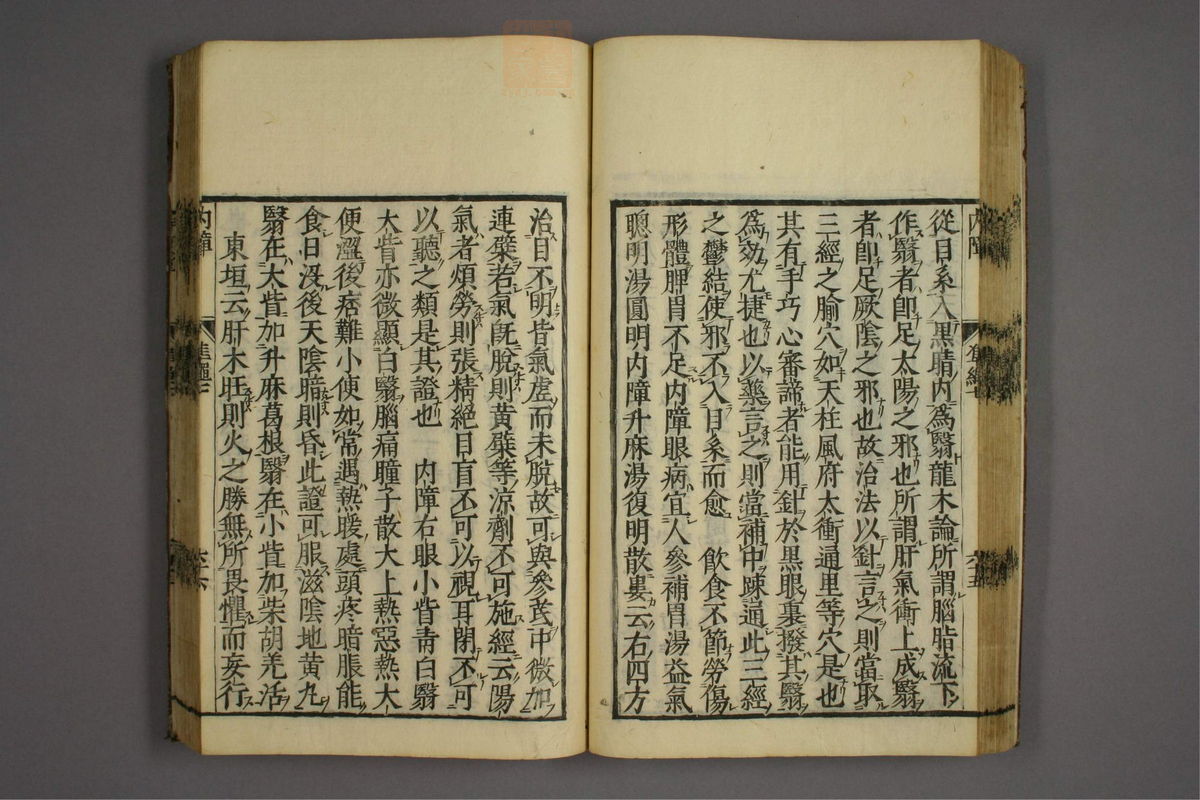 從目系入黒睛内爲翳龍木論所謂腦脂流下
作翳者卽足太陽之邪也所謂肝氣衝上成翳
者卽足厥陰之邪也故治法以針言之則當取
三經之腧穴如天柱風府太衝通里等穴是也
其有手巧心審諦者能用針於黒眼裏撥其翳
爲効尤捷也以藥言之則當補中踈通此三經
之鬱結使邪不入目系而愈　飲食不節勞傷
形體脾胃不足内障眼病宜人參補胃湯益氣
聰明湯圓明内障升麻湯復明散婁云右四方
治目不明皆氣虗而未脫故可與參芪中微加
連蘗若氣旣脫則黄蘗等凉劑不可施經云陽
氣者煩勞則張精絕目盲不可以視耳閉不可
以聽之類是其證也　内障右眼小眥青白翳
大眥亦微顯白翳腦痛瞳子散大上熱惡熱大
便澀後痞難小便如常遇熱暖處頭疼暗脹能
食日没後天陰暗則昏此證可服滋陰地黄九
翳在大眥加升麻葛根翳在小眥加柴胡羌活
東垣云肝木旺則火之勝無所畏懼而妄行
内障
六十五
内障
六十六